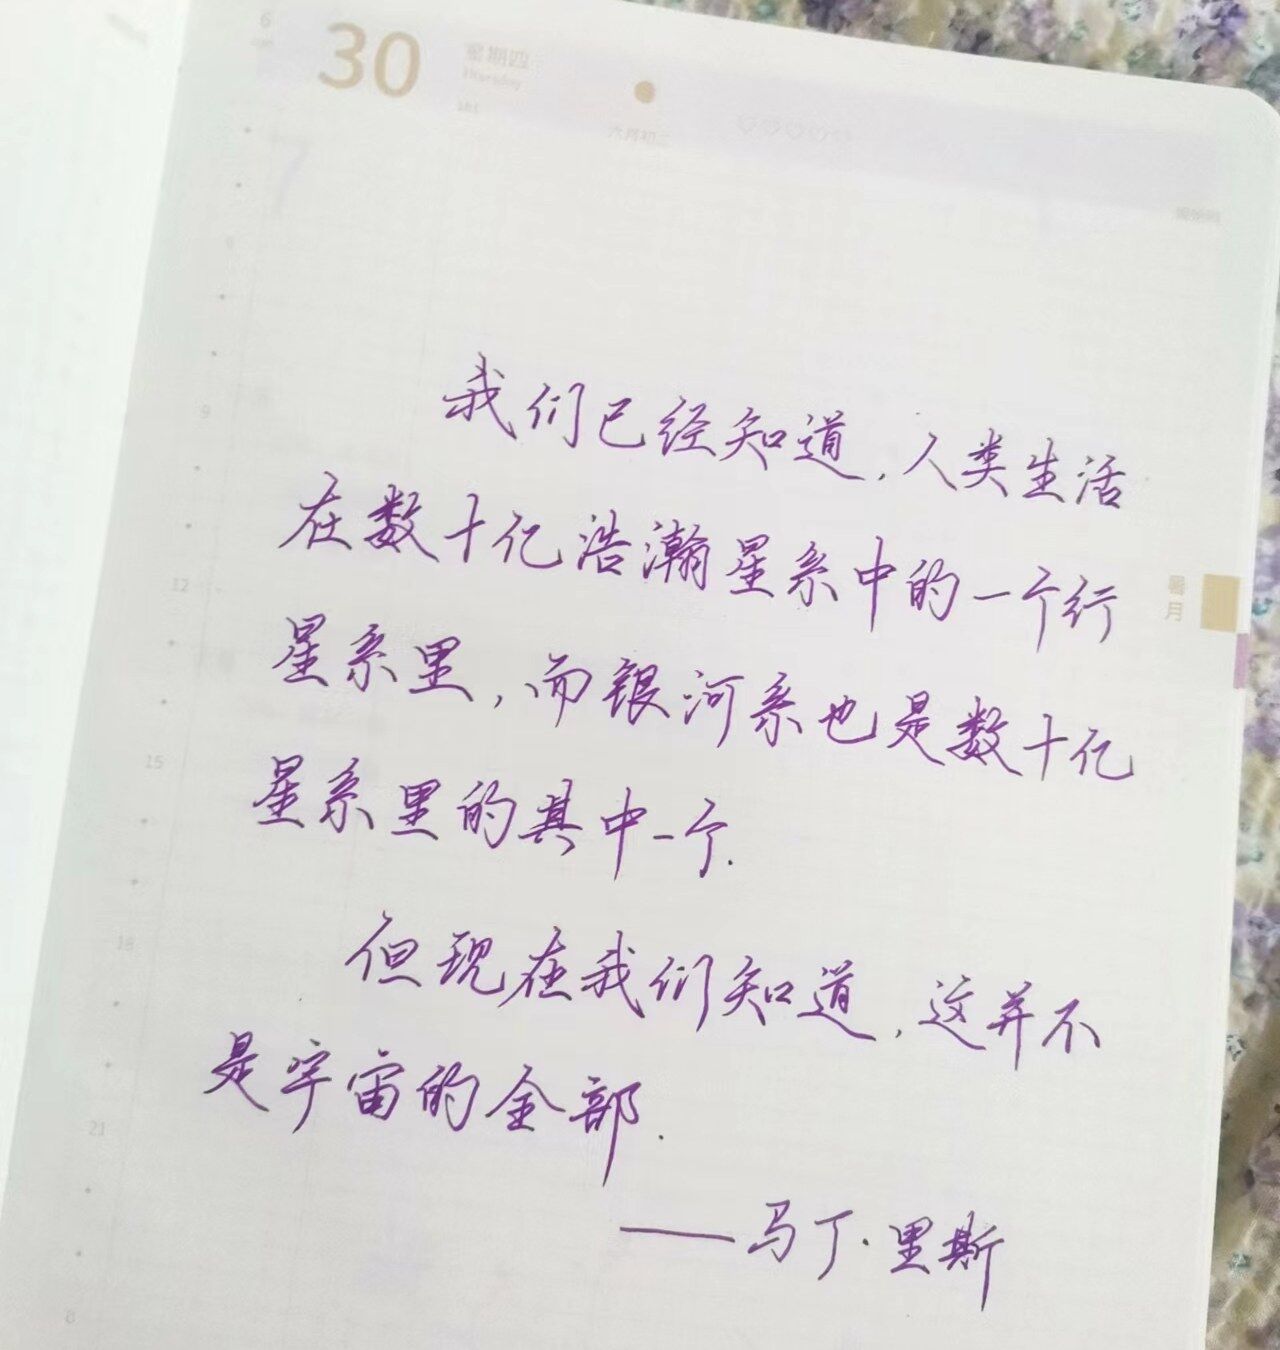 6
30
星期四
Thursday
181
六月初二
9
12
15
18
21
8
暑月
我们已经知道,人类生活
在数十亿浩瀚星系中的一个行
星系里,而银河系也是数十亿
星系里的其中一个.
但现在我们知道,这并不
是宇宙的全部.
——马丁·里斯